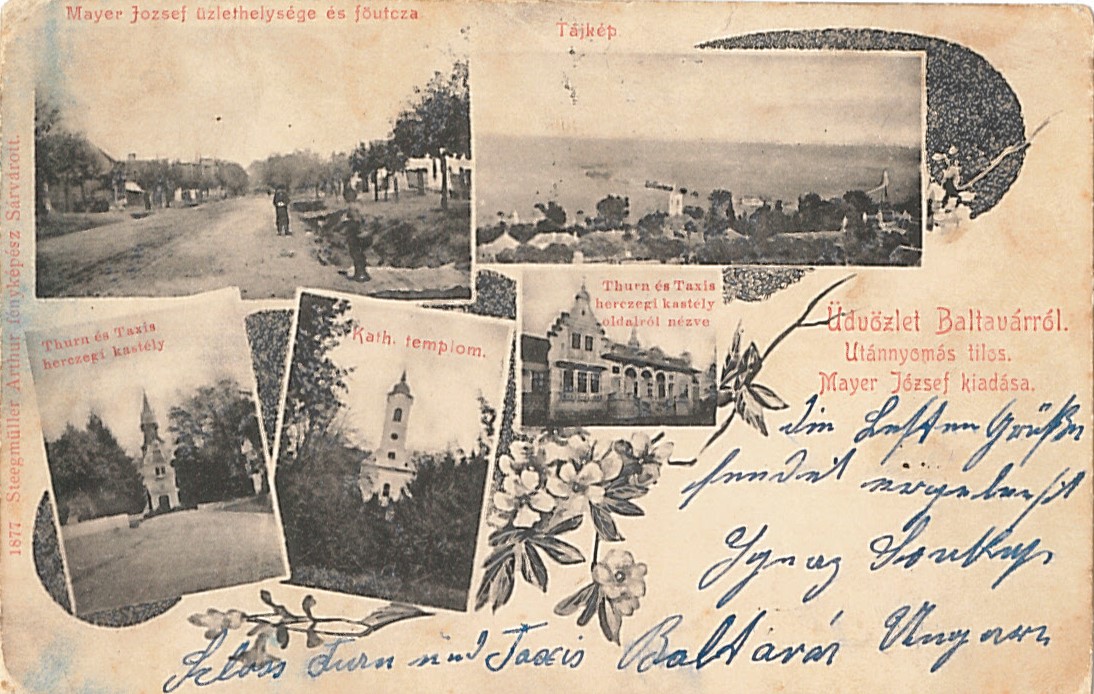 Mayer József üzlethelysége és főutcza
Tájkép
1877 Steegmüller Arthur fényképész Sárvárott.
Thurn és Taxis
herczegi kastély
Kath. templom.
Thurn és Taxis
herczegi kastély
oldalról nézve
Üdvözlet Baltavárról.
Utánnyomás tilos.
Mayer József kiadása.
die besten Grüße
sendet ergebenst
Ignaz
Schloss Turn und Taxis Baltavár Ungarn